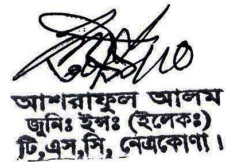 আশরাফুল আলম
জুনিঃ ইন্সঃ (ইলেকঃ)
টি,এস,সি, নেত্রকোণা।